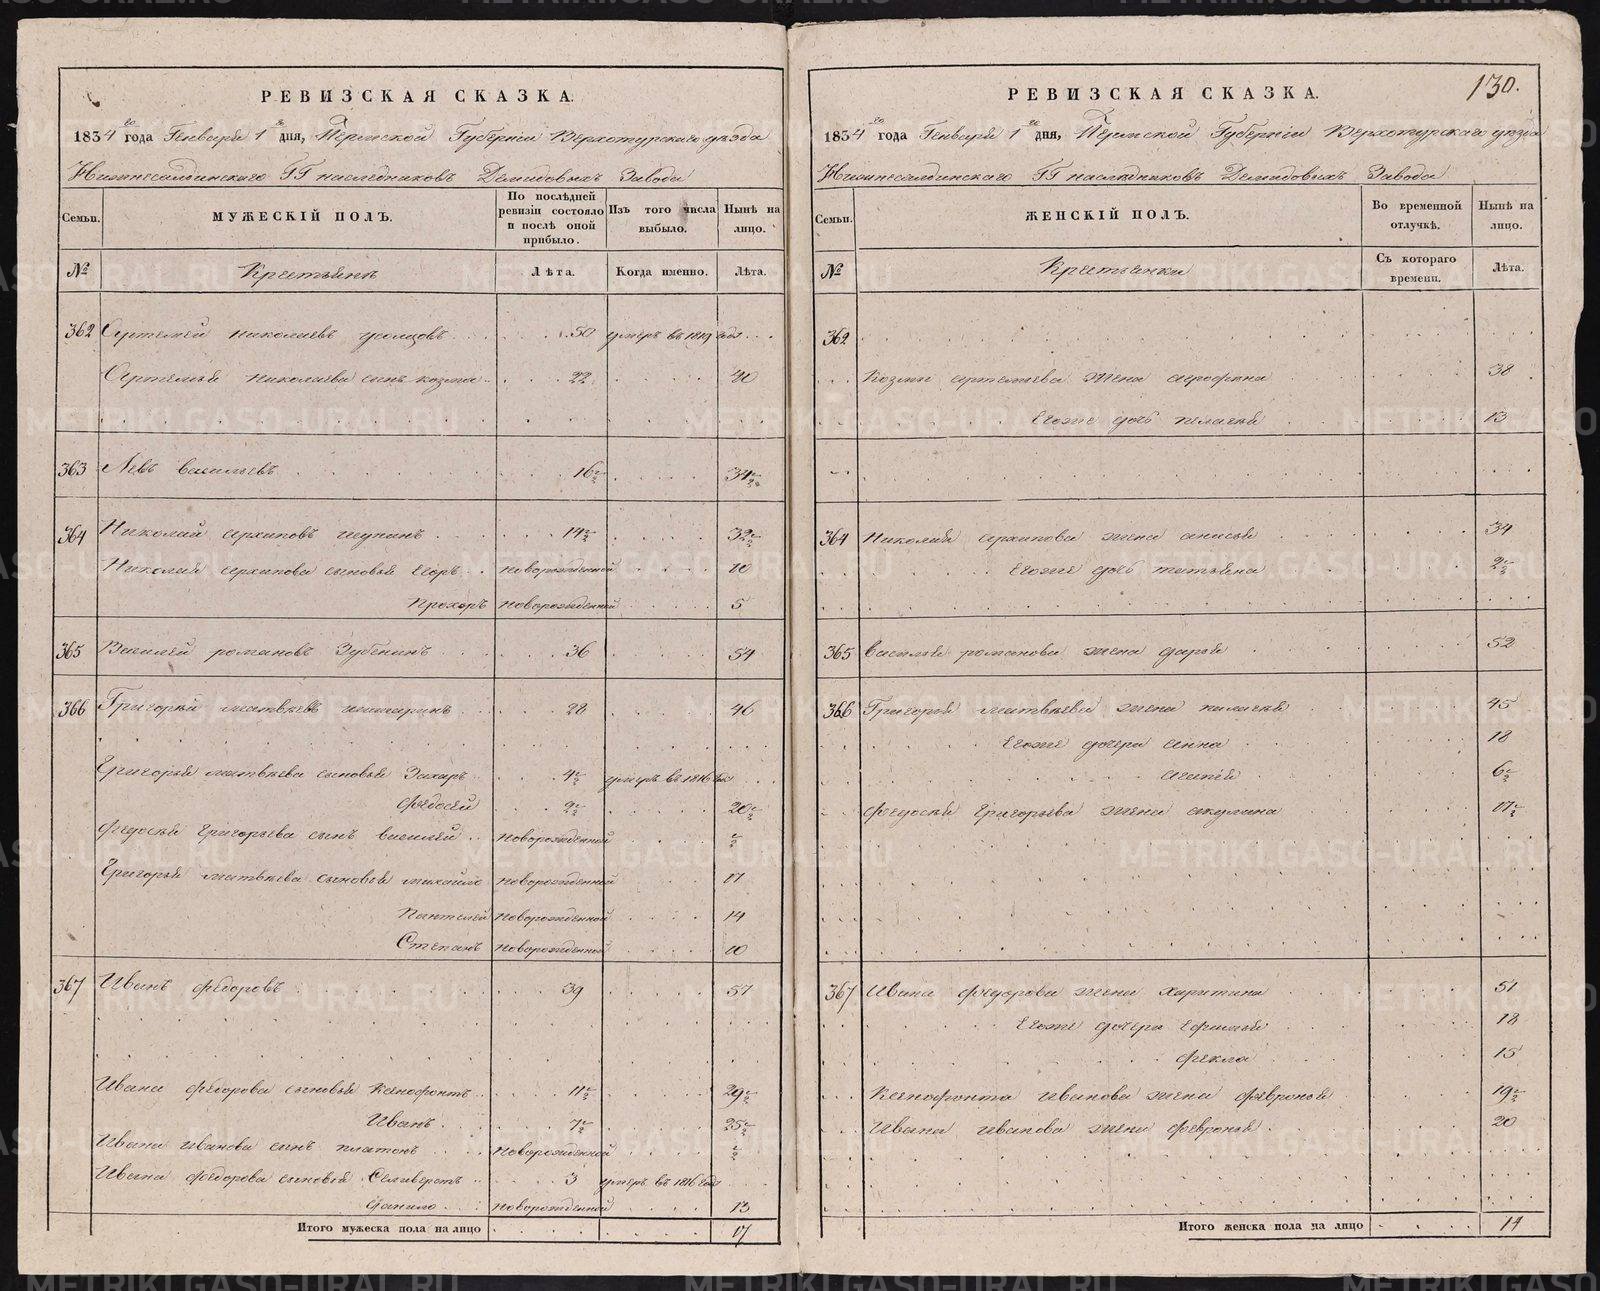 РЕВИЗСКАЯ СКАЗКА.
1834 го года Генваря 1 го дня, Пермской Губерніи Верхотурскаго уезда
Нижнесалдинскаго ГГ наследниковъ Демидовыхъ Завода
Семьи. МУЖЕСКІЙ ПОЛЪ. По послѣдней ревизіи состояло и послѣ оной прибыло. Изъ того числа выбыло. Нынѣ на лицо.
№ Крестьянъ Лѣта. Когда именно. Лѣта.
362 Артемей Николаевъ 50 умеръ въ 1819 годѣ
Артемья Николаева сынъ Козма 22 40
363 Левъ Васильевъ 16½ 34½
364 Николай Архиповъ Шупинъ 14½ 32½
Николая Архипова сыновья Егоръ новорожденной 10
Прохоръ новорожденной 5
365 Василей Романовъ Зубенинъ 36 54
366 Григорей Матвѣевъ 28 46
Григорья Матвѣева сыновья Захаръ 4½ умеръ въ 1816 годѣ
Федосей 2½ 20½
Федосья Григорьева сынъ Василей новорожденной ½
Григорья Матвѣева сыновья Михайло новорожденной 17
Пантелей новорожденной 14
Степанъ новорожденной 10
367 Иванъ Федоровъ 39 57
Ивана Федорова сыновья Ксенофонтъ 11½ 29½
Иванъ 7½ 25½
Ивана Иванова сынъ Платонъ новорожденной ½
Ивана Федорова сыновья Селиверстъ 3 умеръ въ 1816 годѣ
Данило новорожденной 13
Итого мужеска пола на лицо 17
130.
РЕВИЗСКАЯ СКАЗКА.
1834 го года Генваря 1 го дня, Пермской Губерніи Верхотурскаго уезда
Нижнесалдинскаго ГГ наследниковъ Демидовыхъ Завода
Семьи. ЖЕНСКІЙ ПОЛЪ. Во временной отлучкѣ. Нынѣ на лицо.
№ Крестьянки Съ котораго времени. Лѣта.
362
Козмы Артемьева жена Агрофена 38
Егоже дочь Пелагея 13
364 Николая Архипова жена Анисья 34
Егоже дочь Татьяна 2½
365 Василья Романова жена Дарья 52
366 Григорья Матвѣева жена Пелагея 45
Егоже дочеря Анна 18
Агапея 6½
Федосья Григорьева жена Акулина 17½
367 Ивана Федорова жена Харитина 51
Егоже дочеря Ефимья 18
Фекла 15
Ксенофонта Иванова жена Февронья 19½
Ивана Иванова жена Февронья 20
Итого женска пола на лицо 14
METRIKI.GASO-URAL.RU